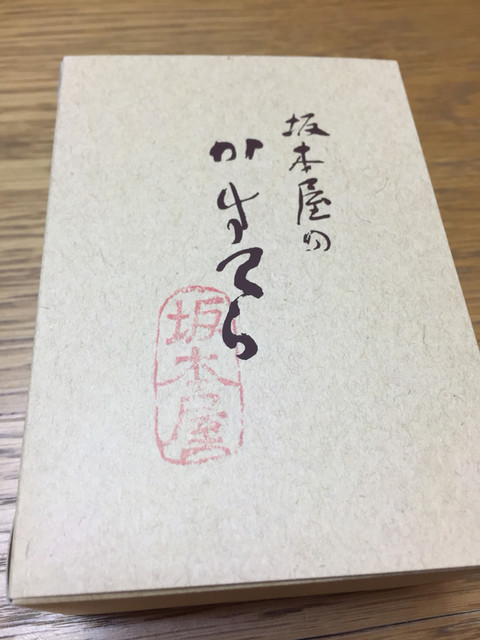 坂本屋の
かすてら
坂本屋